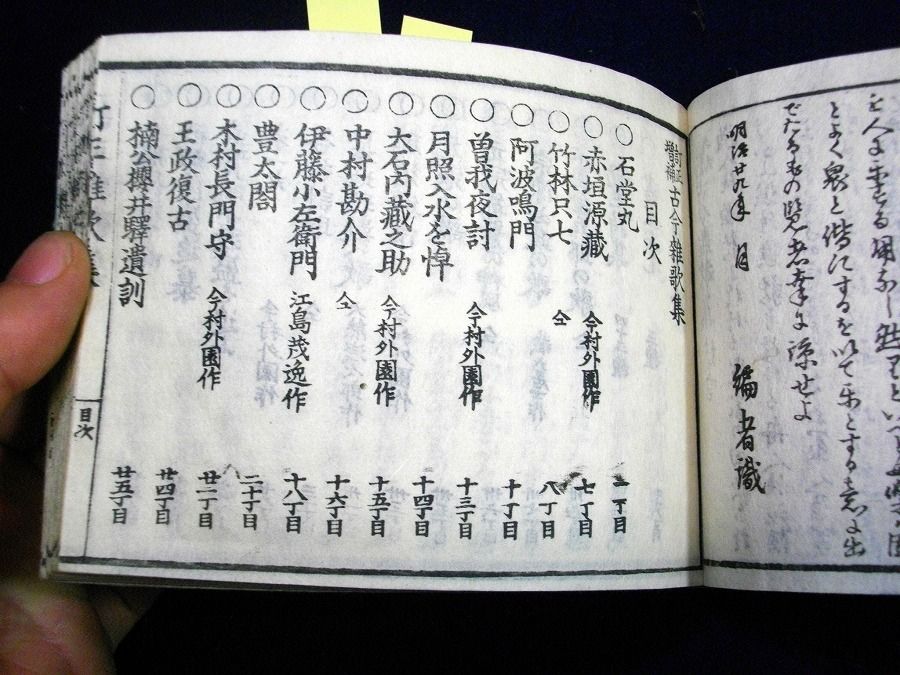 とよく衆と偕にするを以て楽とする志に出
でたるもの覧者幸に諒せよ
明治廿九年 月
編者識
訂正増補 古今雑歌集
目次
○石堂丸 一丁目
○赤垣源藏 今村外園作 七丁目
○竹林只七 仝 八丁目
○阿波鳴門 十丁目
○曽我夜討 今村外園作 十三丁目
○月照入水を悼 十四丁目
○大石内藏之助 今村外園作 十五丁目
○中村勘介 仝 十六丁目
○伊藤小左衛門 江島茂逸作 十八丁目
○豊太閤 二十丁目
○木村長門守 今村外園作 廿一丁目
○王政復古 廿四丁目
○楠公櫻井驛遺訓 廿五丁目
目次